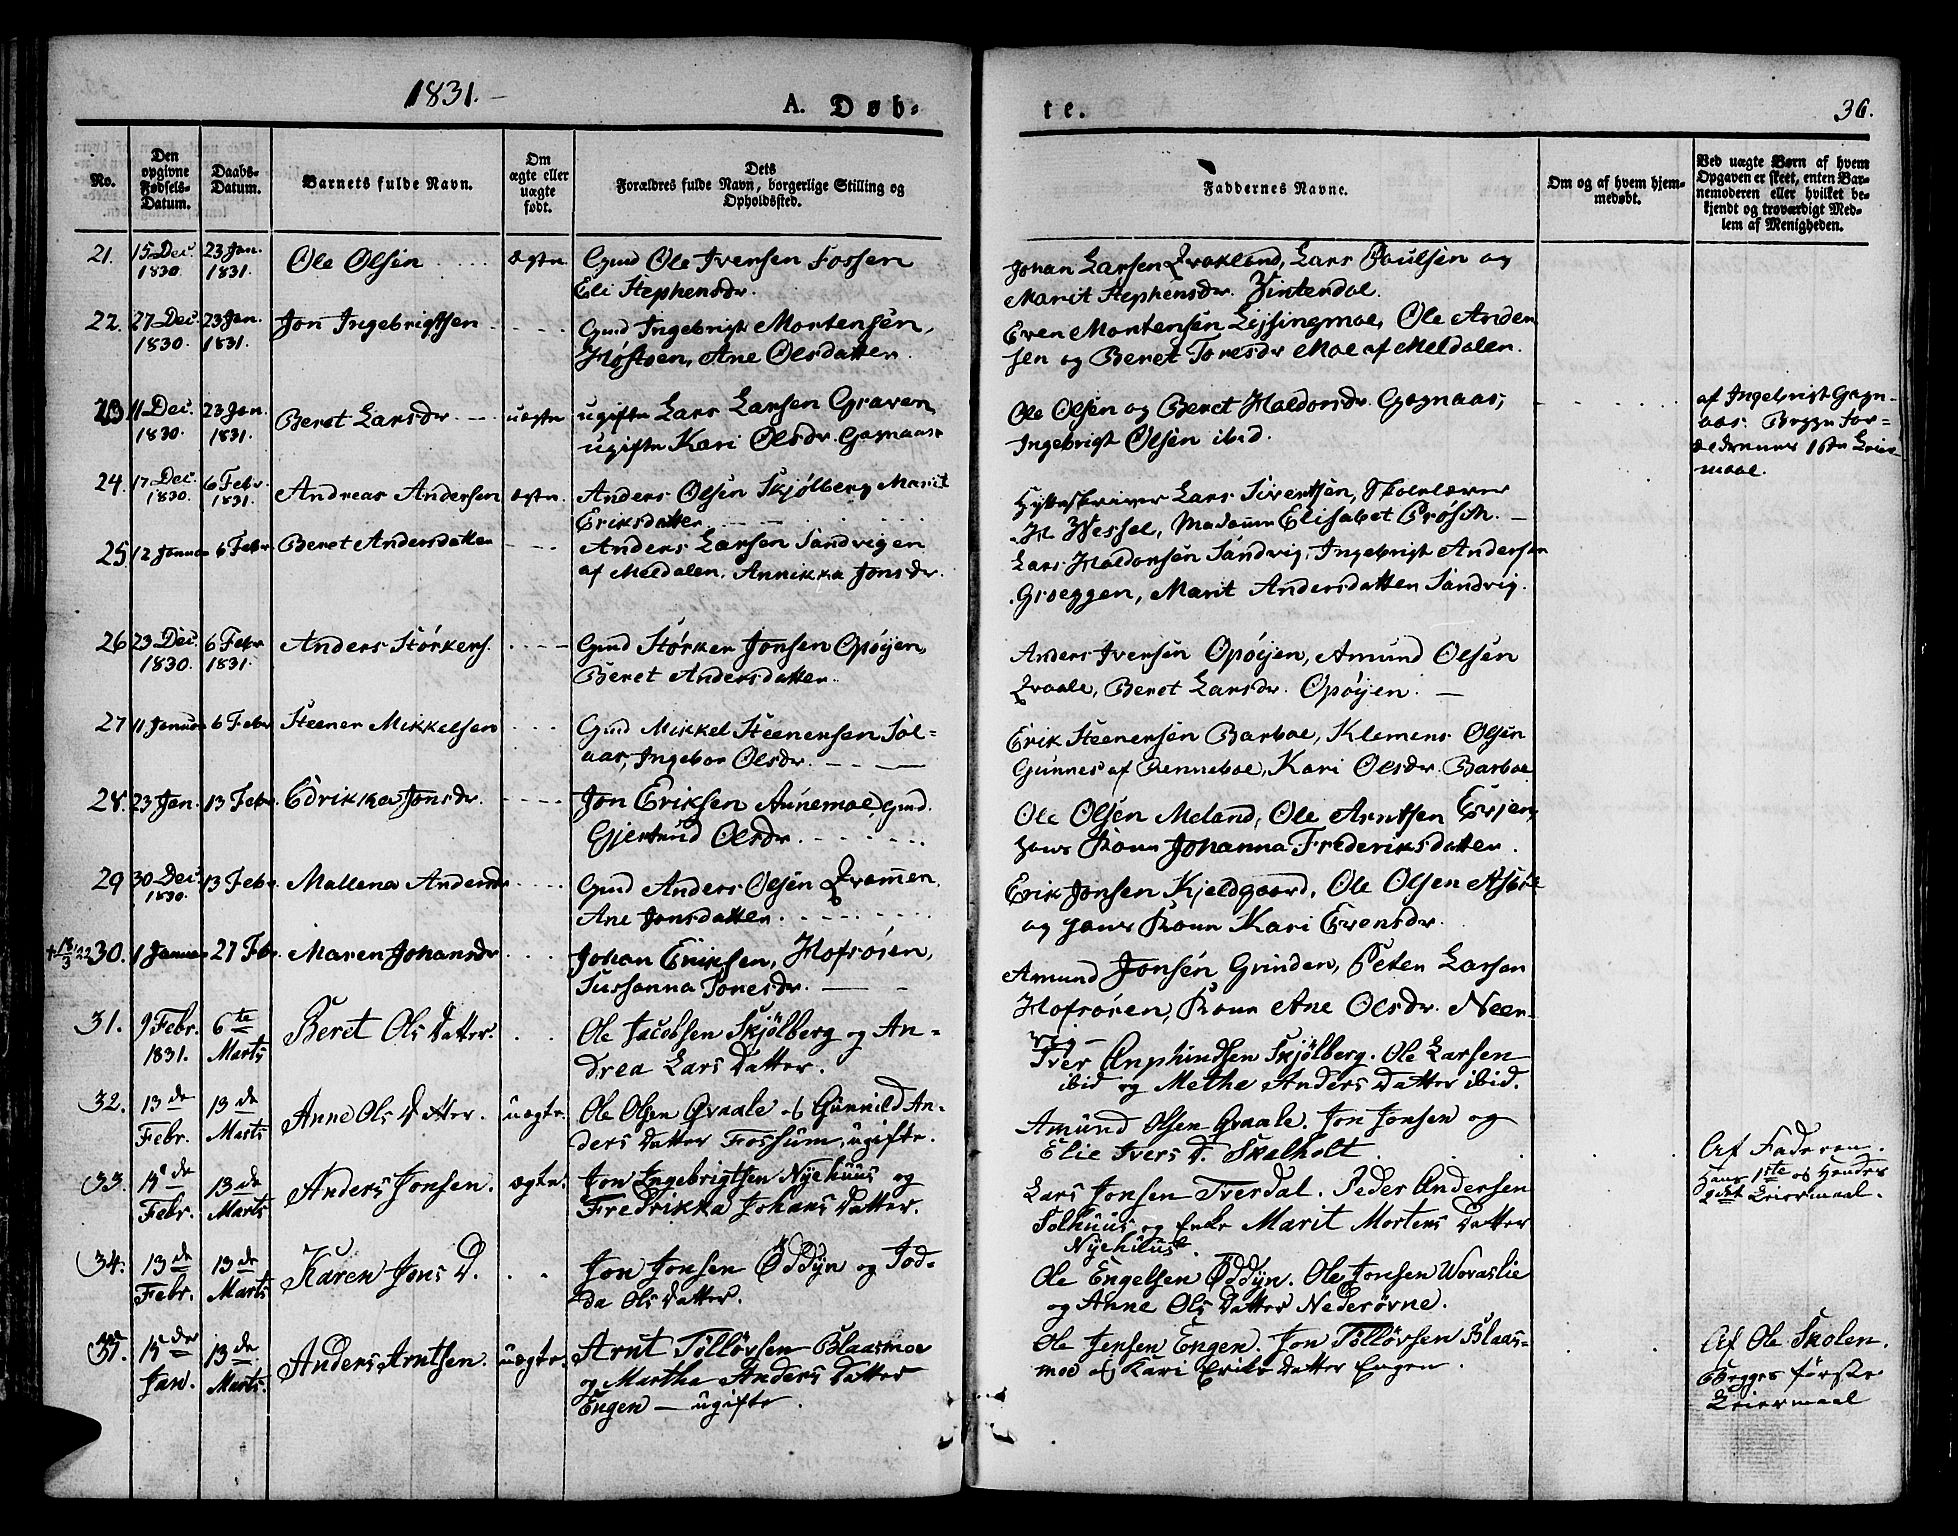 1831.
A. Døb-
te.
36.
No.
Den opgivne Fødsels-Datum.
Daabs-Datum.
Barnets fulde Navn.
Om ægte eller uægte født.
Dets Forældres fulde Navn, borgerlige Stilling og Opholdssted.
Faddernes Navne.
Om og af hvem hjem-medøbt.
Ved uægte Børn af hvem Opgaven er skeet, enten Bar-nemoderen eller hvilket be-kjendt og troværdigt Med-lem af Menigheden.
21. 15 Dec. 1830. 23 Jan. 1831. Ole Olsen ægte Gmd Ole Iversen Fossen
Eli Stephensdr.
Johan Larsen Lars Poulsen og
Marit Stephensdr.
22. 27 Dec. 1830. 23 Jan. 1831. Jon Ingebrigtsen Gmd Ingebrigt Mortensen,
Høstoen, Ane Olsdatter.
Even Mortensen Ole Ander
sen og Beret Toresdr Moe af Meldalen.
23 11 Dec. 1830. 23 Jan. 1831. Beret Larsdr. uægte ugifte Lars Larsen Graven
ugifte Kari Olsdr. Gagnaas
Ole Olsen og Beret Haldorsdr. Gagnaas,
Ingebrigt Olsen ibid.
af Ingebrigt Gagn-
aas. Begge For-
ældrenes 1ste Leier
maal.
24. 17 Dec. 1830. 6 Febr. 1831. Andreas Andersen ægte. Anders Olsen Skjølberg Marit
Eriksdatter
Hytteskriver Lars Sivertsen, Skolelærer
H. Wessel, Madame Elisabet
25. 12 Januar 6 Febr Beret Andersdatter Anders Larsen Sandvigen
af Meldalen. Annikka Jonsdr.
Lars Haldorsen Sandvig, Ingebrigt Andersen
Groeggen, Marit Andersdatter Sandvig.
26 23 Dec. 1830. 6 Febr 1831. Anders Størkers. Gmd Størker Jonsen Opøyen,
Beret Andersdatter.
Anders Iversen Opøyen, Amund Olsen
Qvaale, Beret Larsdr. Opøyen.
27 11 Januar 6 Febr Steener Mikkelsen Gmd Mikkel Steenersen Sol-
aas, Ingebor Olsdr.
Erik Steenersen Barboe, Klemens Olsen
Gunnes af Renneboe, Kari Olsdr. Barboe
28. 23 Jan. 13 Febr. Edrikka Jonsdr. Jon Eriksen Aunemoe, Gmd.
Gjertrud Olsdr.
Ole Olsen Meland, Ole Arntsen Evjen,
hans Kone Johanna Frederiksdatter.
29 30 Dec. 1830. 13 Febr. Mallena Andersdr Gmd Anders Olsen Qvammen,
Ane Jonsdatter.
Erik Jonsen Kjeldgaard, Ole Olsen
og hans Kone Kari Evensdr.
† 18/3 22 30. 1 Januar 27 Fbr. Maren Johansdr Johan Eriksen, Hofrøsen,
Sussanna Tonesdr.
Amund Jonsen Grinden, Peter Larsen
Hofrøsen, Kone Ane Olsdr. Neer-
vig
31. 9 Febr. 1831. 6te Marts Beret Ols Datter. Ole Jacobsen Skjølberg og An-
drea Lars Datter.
Iver Anphindsen Skjølberg. Ole Larsen
ibid og Methe Anders Datter ibid.
32. 13de Febr. 13de Marts Anne Ols Datter. uægte. Ole Olsen Qvaale og Gunnild An-
ders Datter Fossum, ugifte.
Amund Olsen Qvaale. Jon Jonsen og
Elie Ivers D. Skalholt.
Af Faderen.
Hans 1ste og Hendes
2det Leiermaal.
33. 15de Febr. 13de Marts Anders Jonsen. ægte. Jon Ingebrigtsen Nyehuus og
Fredrikka Johans Datter.
Lars Jonsen Tverdal. Peder Andersen
Solhuus og Enke Marit Mortens Datter
Nyehuus.
34. 13de Febr. 13de Marts Karen Jons D. Jon Jonsen Øddyn og Tod-
da Ols Datter.
Ole Engelsen Øddyn. Ole Jonsen Woraslie
og Anne Ols Datter Nederøvne.
35. 15de Jan. 13de Marts. Anders Arntsen. uægte. Arnt Tølløvsen Blaasmoe
og Martha Anders Datter
Engen — ugifte.
Ole Jensen Engen. Jon Tølløvsen Blaas-
moe og Kari Eriks Datter Engen.
Af Ole Skolen.
Begges første
Leiermaal